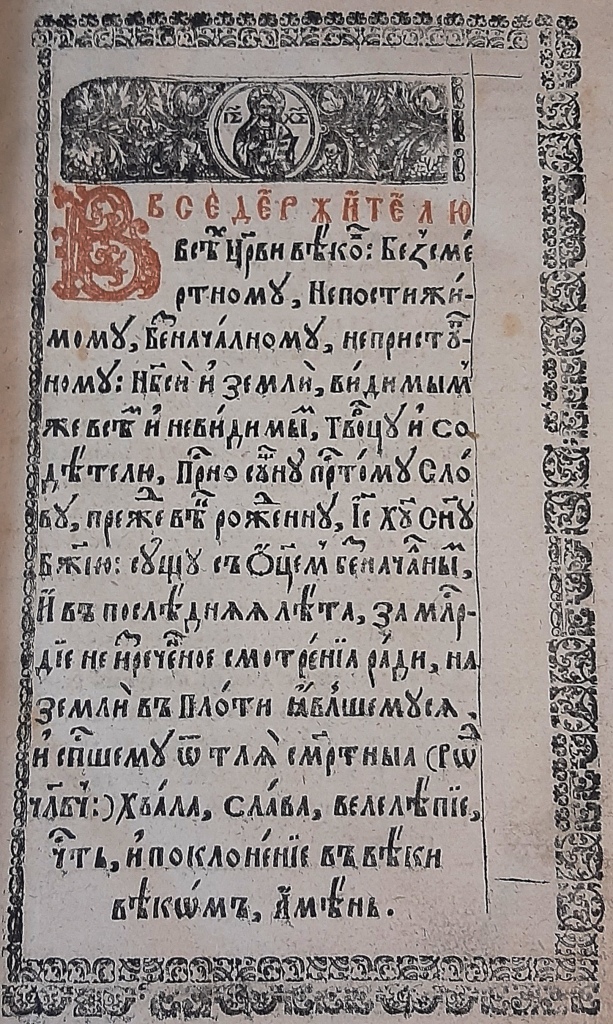 І҃С Х҃С
ВСЕДЕ́РЖИ́ТЕ́ЛЮ
всѣ́ Цр҃ви вѣ́кѡ: Безсме́
ртному, Непостижи́-
мому, Безнача́лному, непристу́п-
ному: Нб҃си и҆ землѝ, ви́димым
же всѣ́м и҆ неви́димы, Творцу и҆ со
дѣ́телю, Прⷭ҇но су́щну прⷭ҇то́му Сло́
ву, преж́е вѣ́к рожде́нну, І҆с҃ Хⷭ҇у Сн҃у
Бж҃ію: сущу съ Ѻ҆ц҃ем безнача́лны,
И҆ въ послѣ́дняя лѣ́та, за млⷭ҇р-
діе не и҆зрече́нное смотре́нїа ра́ди, на
землѝ въ Пло́ти ꙗ҆вл́шемуся,
и҆ сп҃шему ѿ тля̀ сме́ртныа (Рѡ҃
чл҃вч:) Хъала, сла́ва, велелѣ́піе,
чⷭ҇ть, и҆ поклоне́нїе въ вѣ́ки
вѣ́кѡмъ, А҆ми́нь.